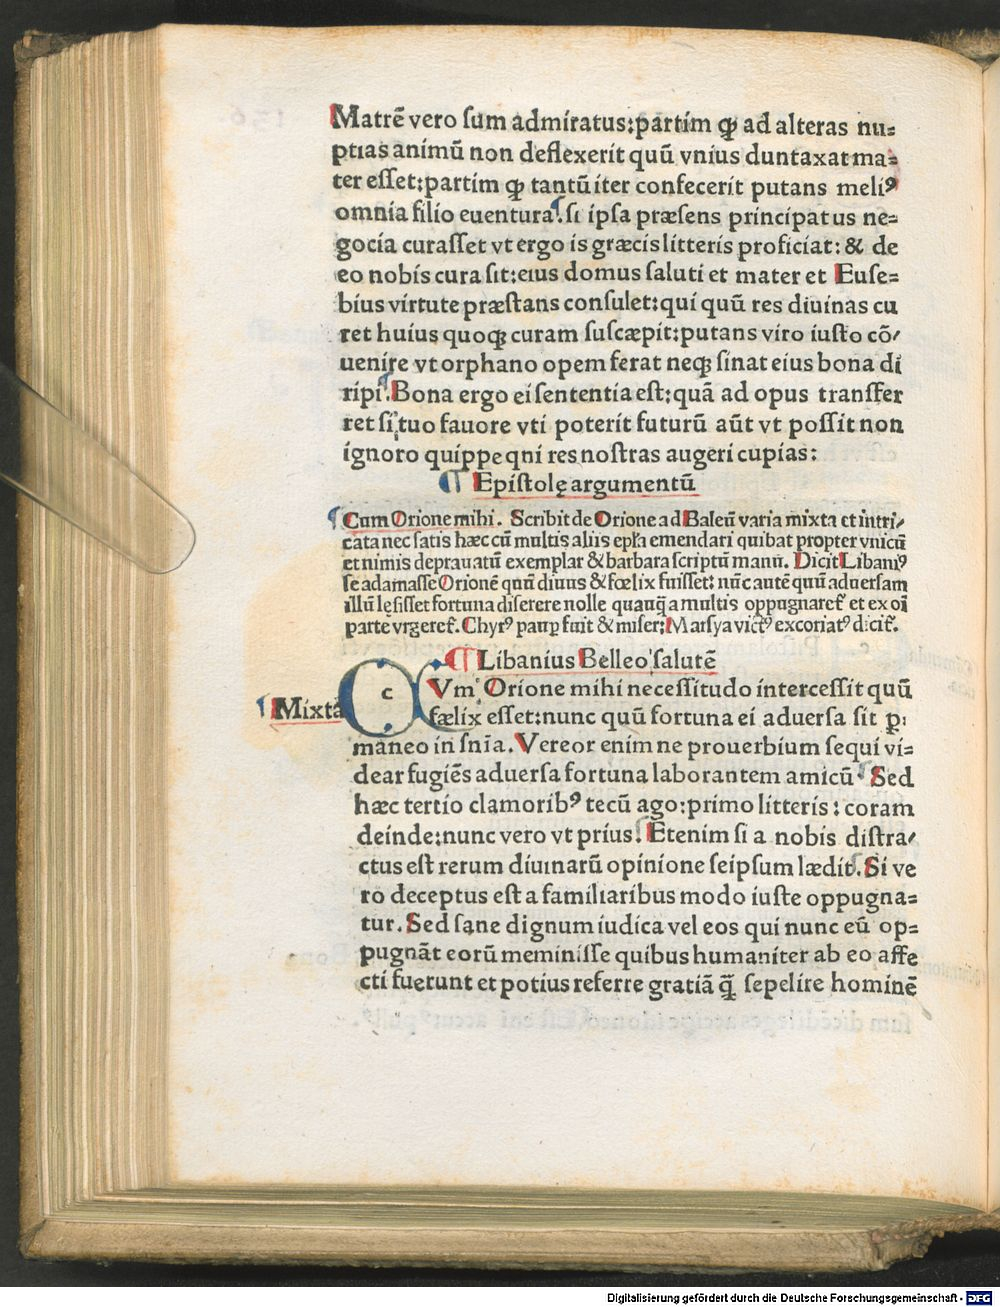 Matrē vero sum admiratus:partim ꝙ ad alteras nu=
ptias animū non deflexerit quū vnius duntaxat ma=
ter esset:partim ꝙ tantū iter confecerit putans meliꝰ
omnia filio euentura. si ipsa præsens principatus ne=
gocia curasset vt ergo is græcis litteris proficiat: & de
eo nobis cura sit:eius domus saluti et mater et Euse=
bius virtute præstans consulet:qui quū res diuinas cu
ret huius quoqꝫ curam suscæpit:putans viro iusto cō/
uenire vt orphano opem ferat neqꝫ sinat eius bona di
ripi. Bona ergo ei sententia est:quā ad opus transfer
ret si tuo fauore vti poterit futurū aūt vt possit non
ignoro quippe qni res nostras augeri cupias:
¶ Epistolę argumentū
¶ Cum Orione mihi. Scribit de Orione ad Baleū varia mixta et intri/
cata nec satis hæc cū multis aliis epła emendari quibat propter vnicū
et nimis deprauatū exemplar & barbara scriptū manu. Dicit Libaniꝰ
se adamasse Orionē quū diuus & fœlix fuisset: nūc autē quū aduersam
illū lęsisset fortuna diserere nolle quāuq̄ a multis oppugnaret᷑ et ex oī
parte vrgeret᷑. Chyrꝰ paup fuit & miser: Marsya victꝰ excoriatꝰ dicit᷑.
¶ Libanius Belleo salutē
¶ Mixta
c
Vm Orione mihi necessitudo intercessit quū
fælix esset:nunc quū fortuna ei aduersa sit ꝑ:
maneo in snīa. Vereor enim ne prouerbium sequi vi=
dear fugiēs aduersa fortuna laborantem amicū. Sed
hæc tertio clamoribꝰ tecū ago:primo litteris: coram
deinde:nunc vero vt prius. Etenim si a nobis distra/
ctus est rerum diuinarū opinione seipsum lædit. Si ve
ro deceptus est a familiaribus modo iuste oppugna=
tur. Sed sane dignum iudica vel eos qui nunc eū op=
pugnāt eorū meminisse quibus humaniter ab eo affe
cti fuerunt et potius referre gratiā q̄ sepelire hominē
Digitalisierung gefördert durch die Deutsche Forschungsgemeinschaft - DFG